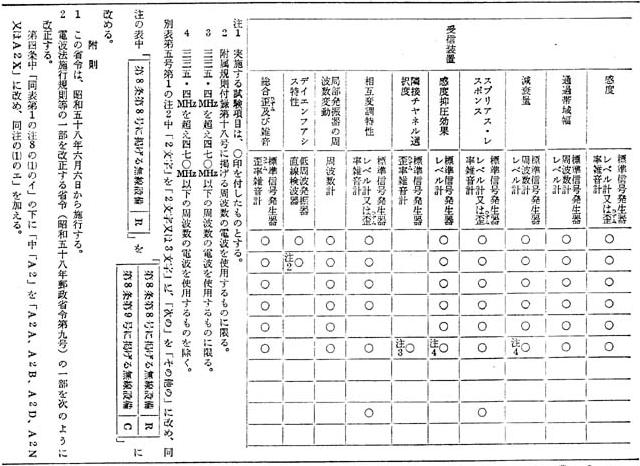 受信装置
感度
標準信号発生器
レベル計又は歪
率雑音計
通過帯域幅
標準信号発生器
周波数計
レベル計
減衰量
標準信号発生器
周波数計
レベル計
注4
スプリアス・レ
スポンス
標準信号発生器
レベル計又は歪
率雑音計
感度抑圧効果
標準信号発生器
レベル計
注4
隣接チャネル選
択度
標準信号発生器
レベル計又は歪
率雑音計
注3
相互変調特性
標準信号発生器
レベル計又は歪
率雑音計
局部発振器の周
波数変動
周波数計
デイエンフアシ
ス特性
低周波発振器
直線検波器
注2
総合歪及び雑音
標準信号発生器
歪率雑音計
注1 実施する試験項目は、〇印を付したものとする。
2 附属規則付録第十八号に掲げる周波数の電波を使用するものに限る。
3 三三五・四MHzを超え四七〇MHz以下の周波数の電波を使用するものに限る。
4 三三五・四MHzを超え四七〇MHz以下の周波数の電波を使用するものを除く。
別表第五号第1の注2中「2文字」を「2文字又は3文字」に、「次の」を「その他の」に改め、同
注の表中「第8条第8号に掲げる無線設備 R」を「第8条第8号に掲げる無線設備 R
第8条第9号に掲げる無線設備 C」に
改める。
附 則
1 この省令は、昭和五十八年六月六日から施行する。
2 電波法施行規則等の一部を改正する省令(昭和五十八年郵政省令第九号)の一部を次のように
改正する。
第四条中「同表第1の注8の(1)のイ」の下に「中「A2」を「A2A、A2B、A2D、A2N
又はA2X」に改め、同注の(1)のエ」を加える。